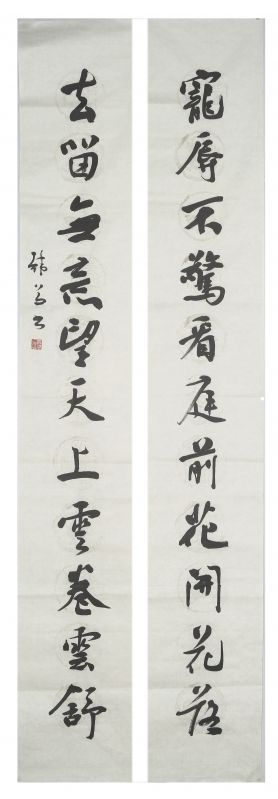 寵辱不驚看庭前花開花落
去留無意望天上雲卷雲舒
书